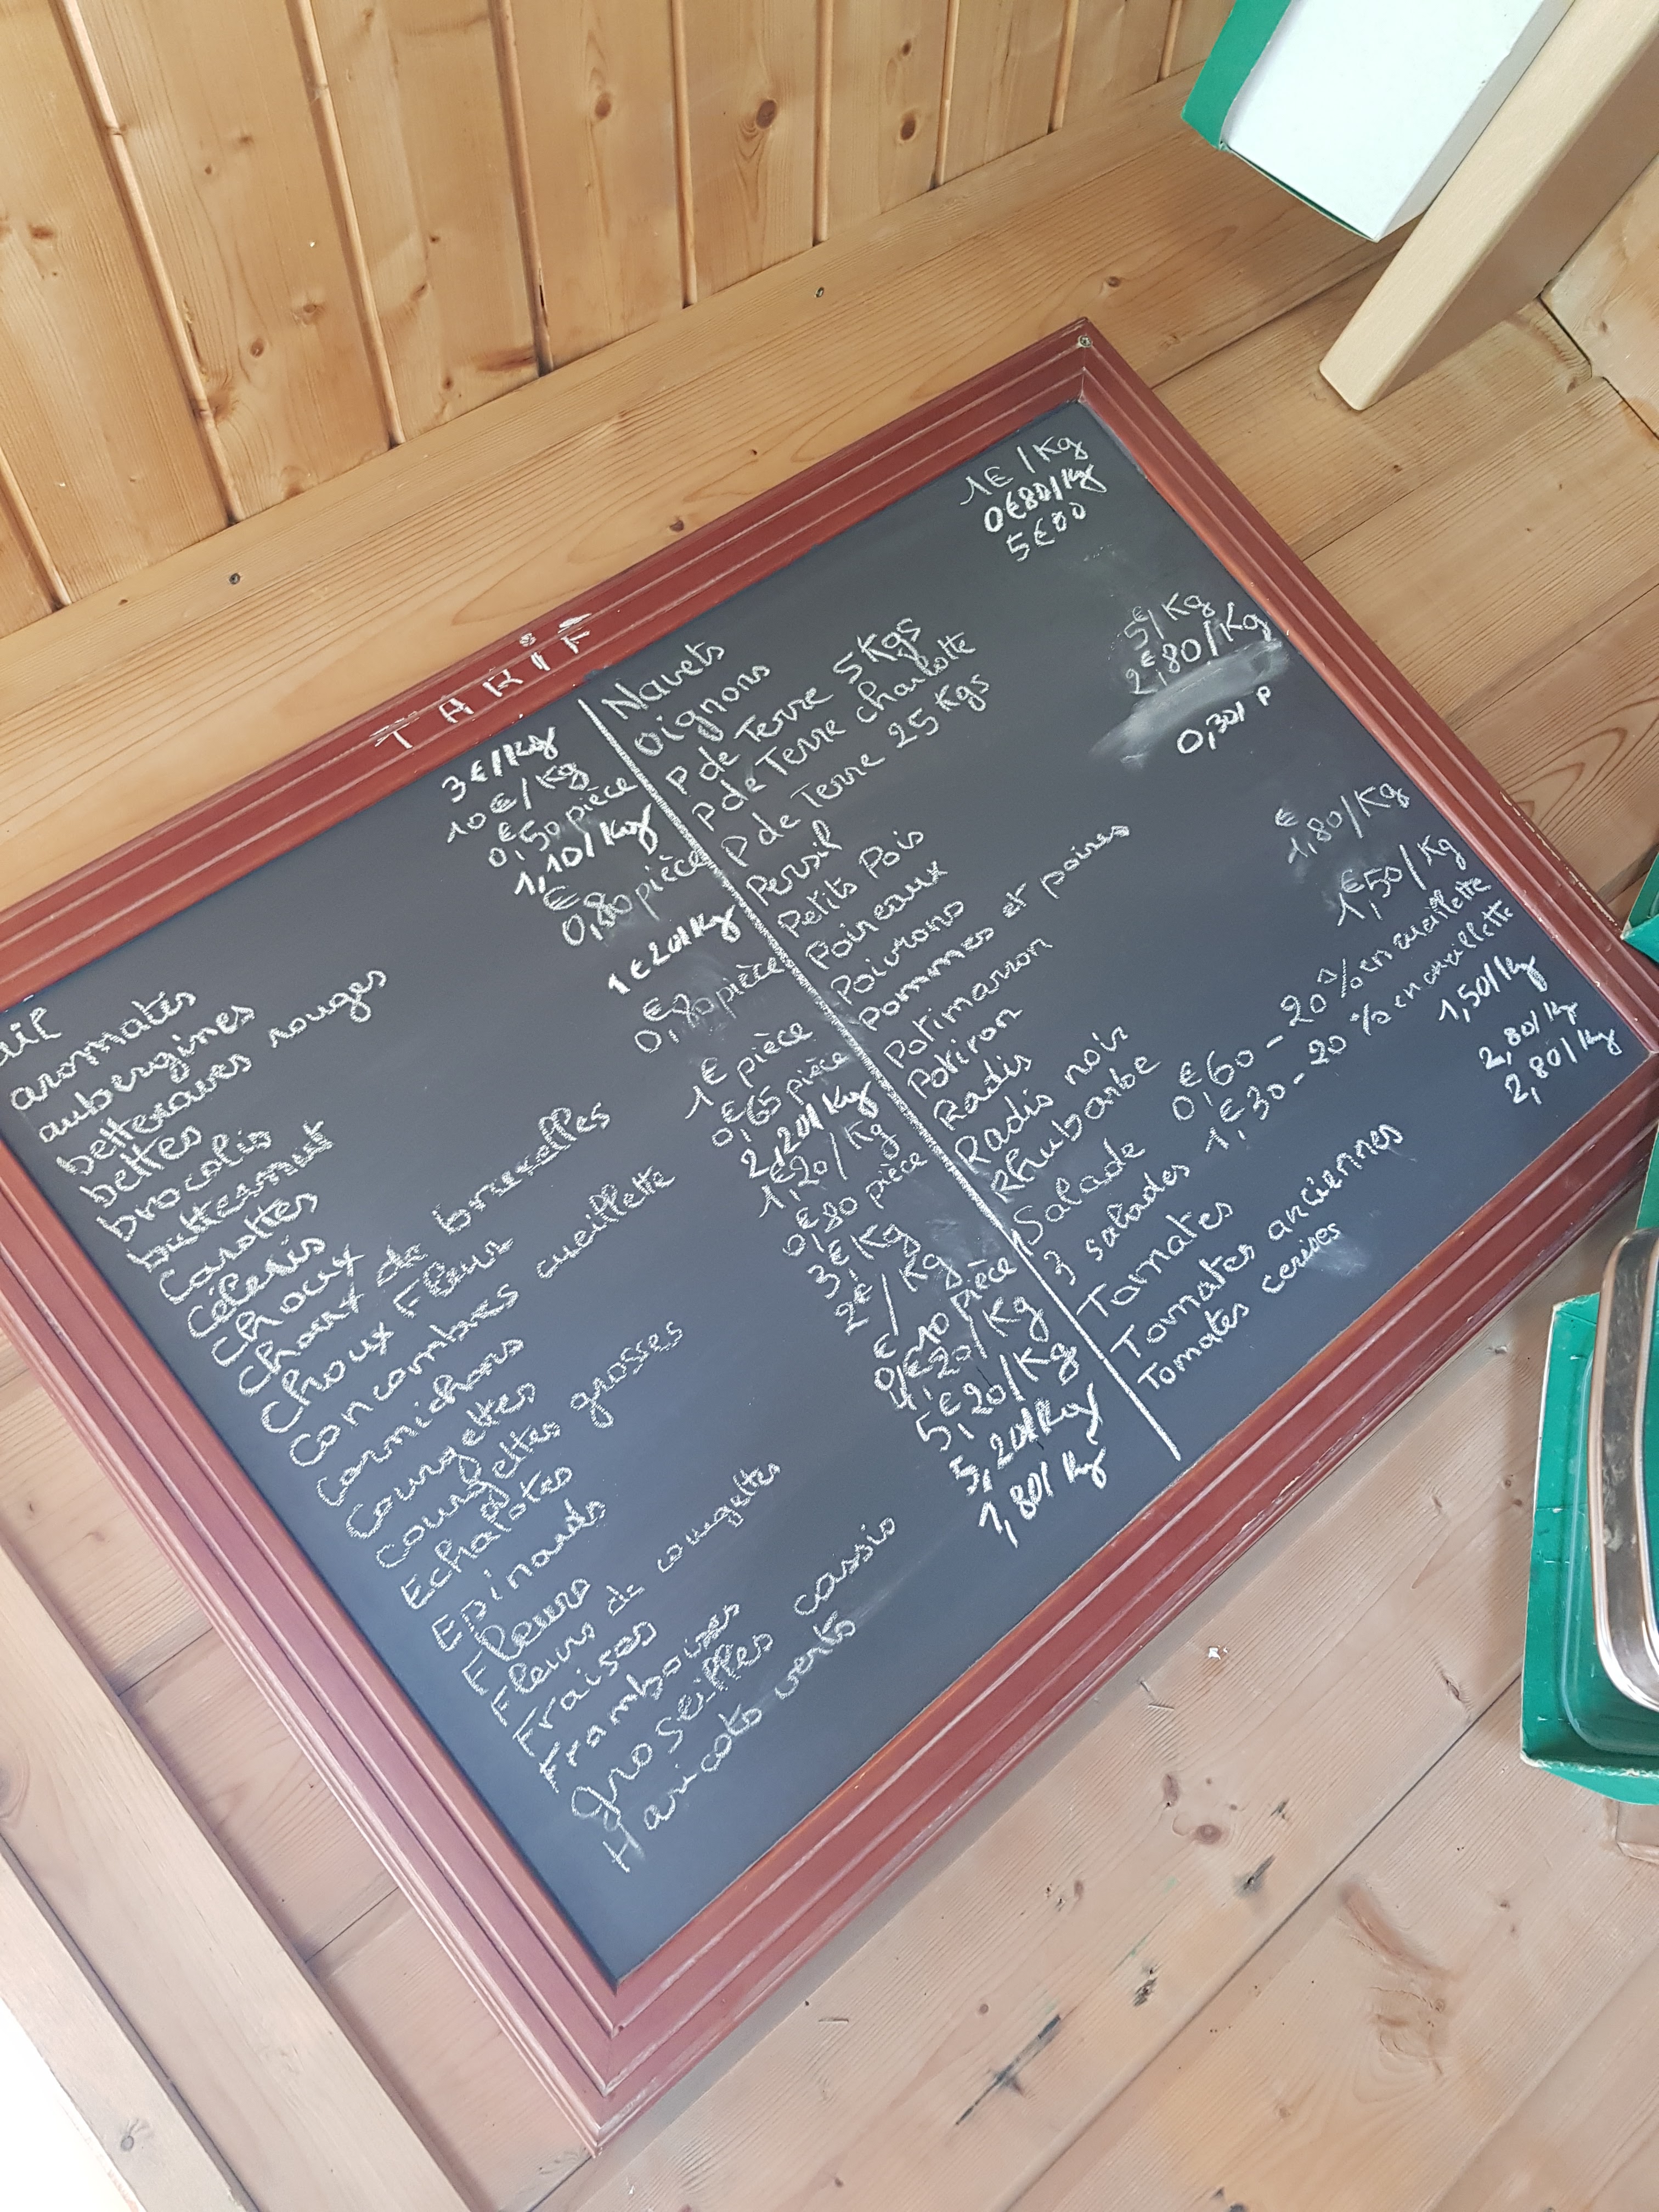 TARiF
ail 3€/kg
aromates 10€/Kg
aubergines 0,€50 pièce
betteraves rouges 1,10/Kg
bettes 0,€80 pièce
brocolis
butternut
carottes 1€20/Kg
céleris
choux 0,€80 pièce
choux de bruxelles
choux Fleur 1€ pièce
concombres cueillette 0,€65 pièce
cornichons 2,20/Kg
courgettes 1,€20/Kg
courgettes grosses 0,€80 pièce
Echalotes 3€Kg
Epinards 2€/Kg
Fleurs
Fleurs de courgettes 0,€10 pièce
Fraises 4,€20/Kg
Framboises 5,€20/Kg
groseilles cassis 5,20/Kg
Haricots verts 1,80/kg
Navets 1€/Kg
oignons 0€80/kg
P de Terre 5Kgs 5€00
P de Terre charlotte
P de Terre 25 Kgs
Persil 5€/Kg
Petits Pois 2,€80/Kg
Poireaux
Poivrons 0,30/P
Pommes et poires
Potimarron
Potiron
Radis 1,€80/Kg
Radis noir
Rhubarbe 1,€50/Kg
Salade 0,€60 - 20% en cueillette
3 salades 1,€30 - 20 % en cueillette
Tomates 1,50/kg
Tomates anciennes 2,80/kg
Tomates cerises 2,80/kg